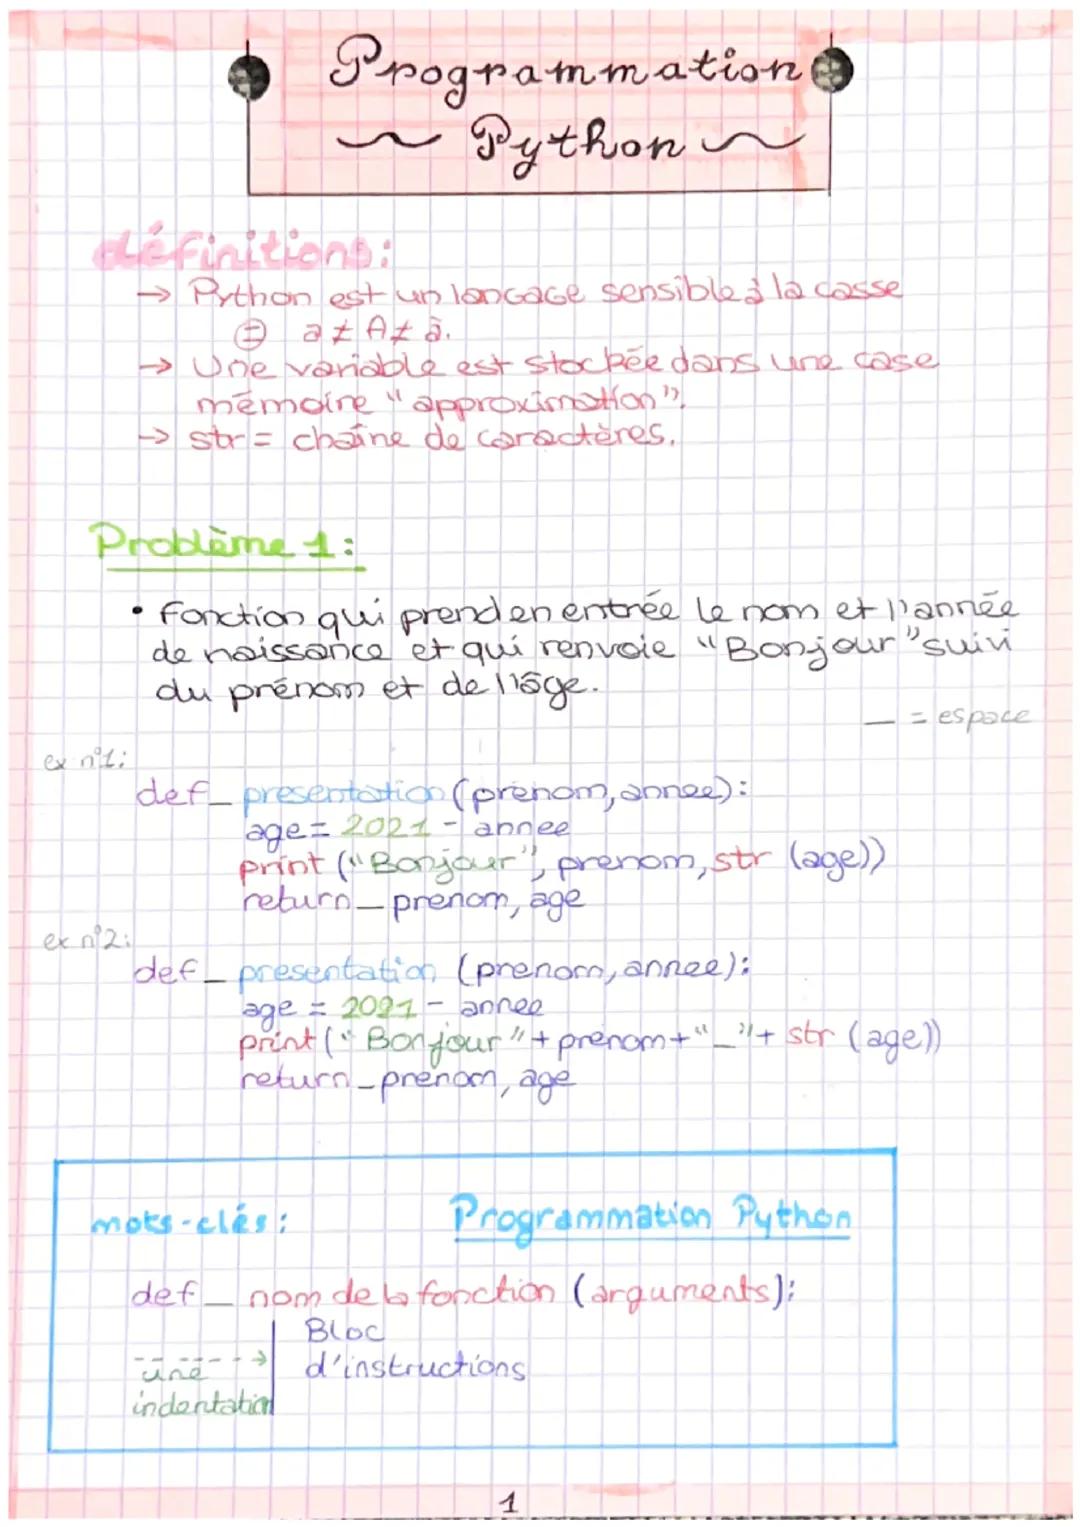 Programmation
Python
définitions:
→ Python est un langage sensible à la casse
⊜ a ≠ A ≠ à.
→ Une variable est stockée dans une case
mémoire "approximation".
→ str = chaîne de caractères.
Problème 1:
• Fonction qui prend en entrée le nom et l'année
de naissance et qui renvoie "Bonjour" suivi
du prénom et de l'âge.
_ = espace
ex n°1:
def_presentation (prenom, annee):
age = 2021 - annee
print ("Bonjour", prenom, str (age))
return_prenom, age
ex n°2:
def_presentation (prenom, annee):
age = 2021 - annee
print ("Bonjour" + prenom + "_" + str (age))
return_prenom, age
mots-clés: Programmation Python
def_nom de la fonction (arguments):
Bloc
une d'instructions
indentation
1